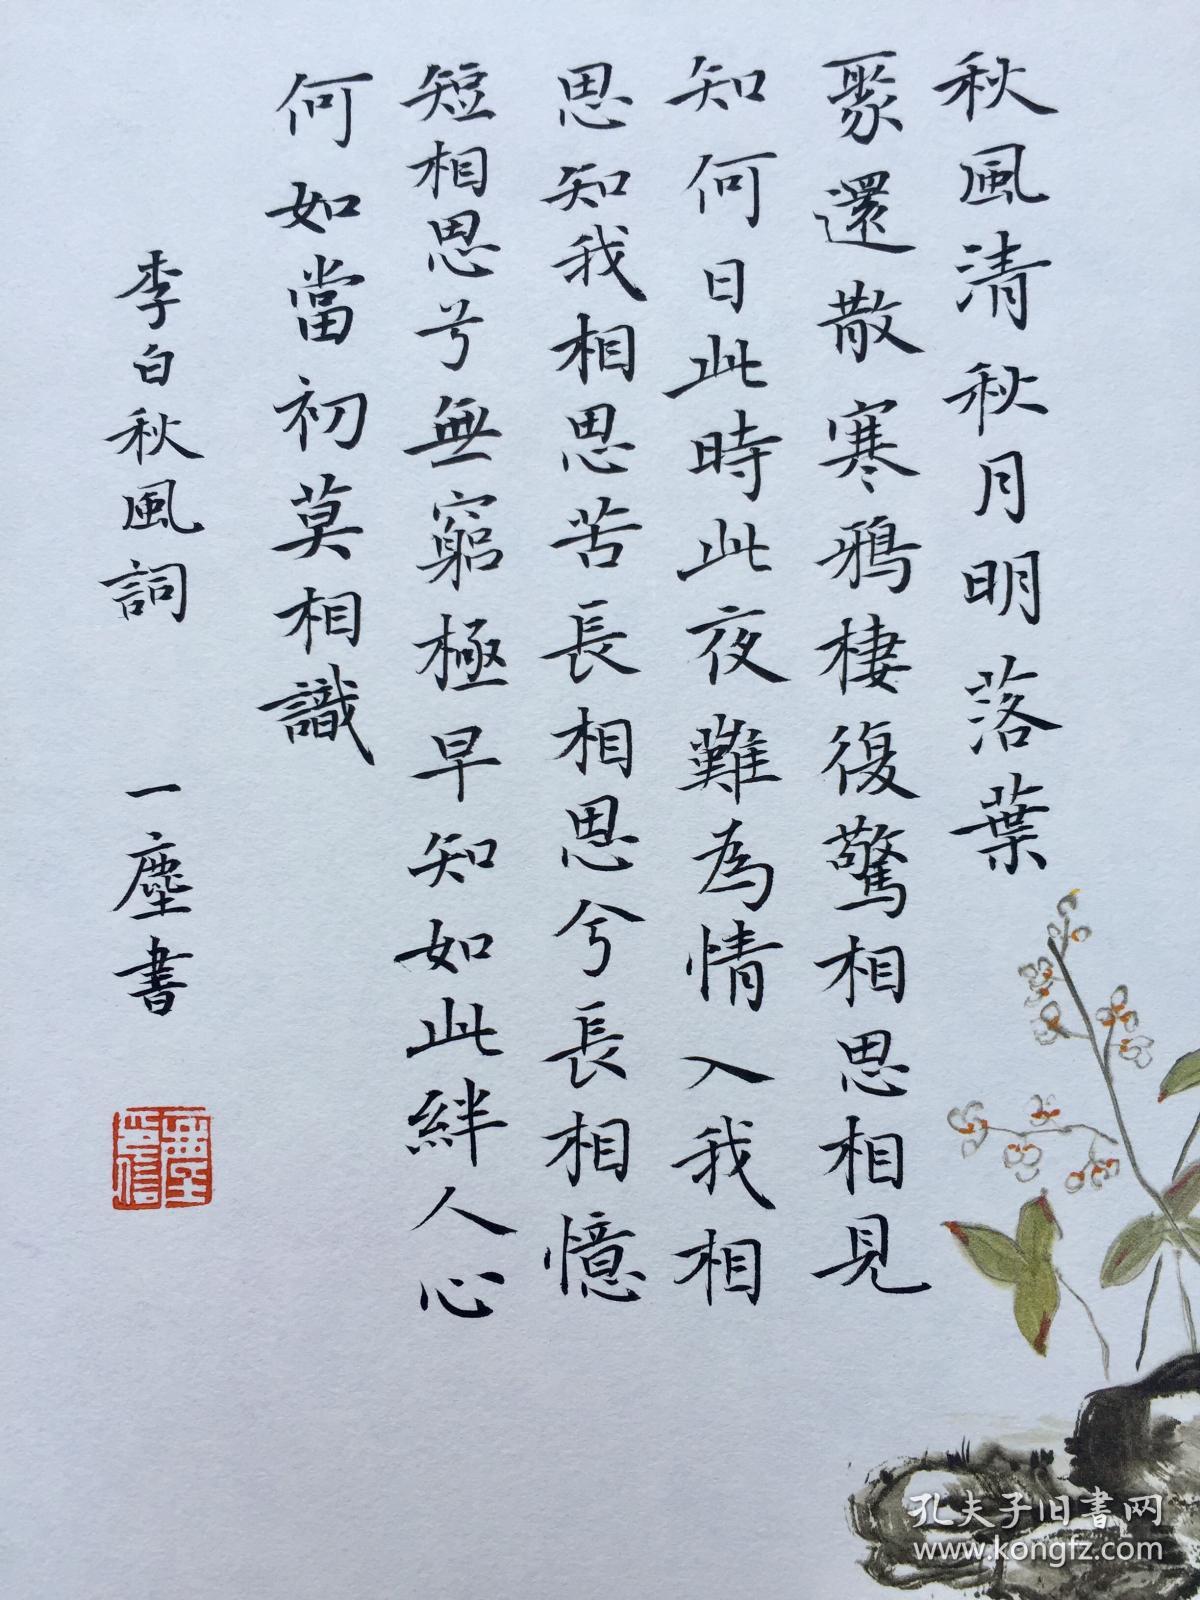 秋風清秋月明落葉
聚還散寒鴉棲復驚相思相見
知何日此時此夜難為情入我相
思知我相思苦長相思兮長相憶
短相思兮無窮極早知如此絆人心
何如當初莫相識
李白秋風詞 一塵書
孔夫子旧書网
www.kongfz.com